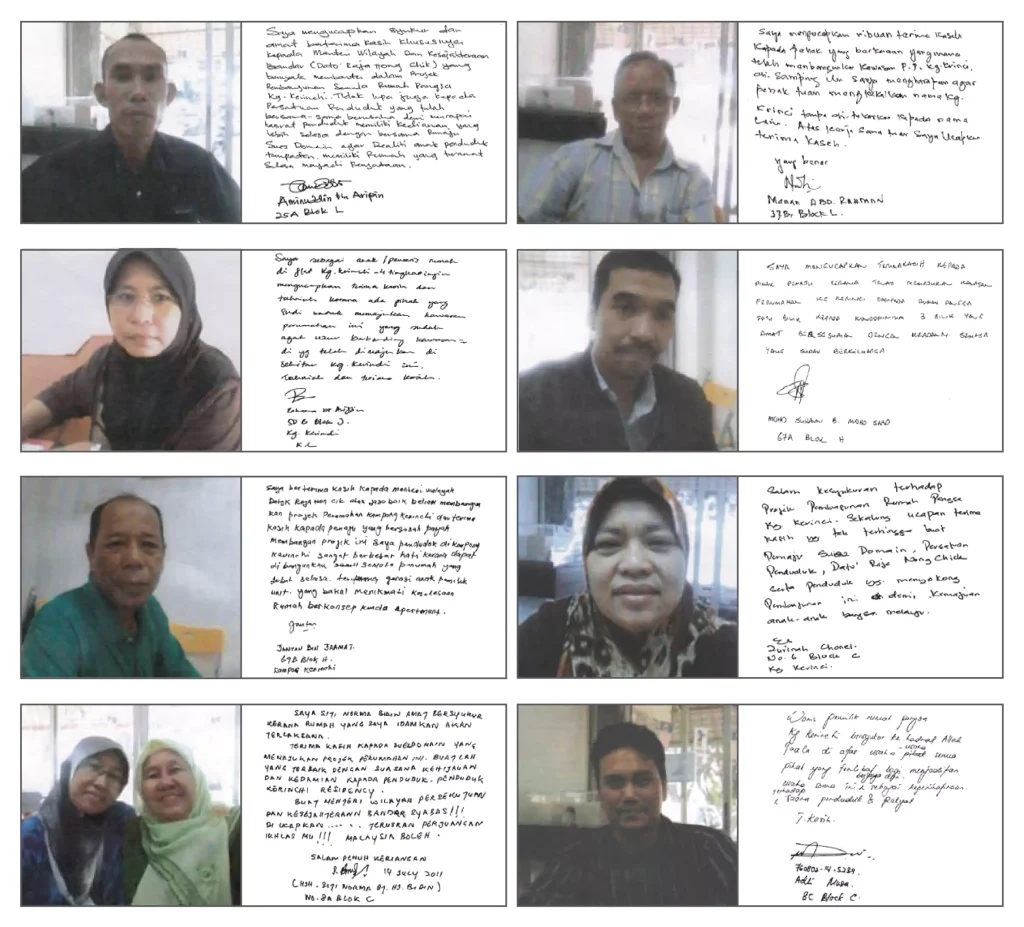 Saya mengucapkan syukur dan
amat berterima kasih khususnya
kepada Menteri Wilayah Dan Kesejahteraan
Bandar (Dato' Raja Nong Chik) yang
banyak membantu dalam Projek
Pembangunan Semula Rumah Pangsa
Kg. Kerinchi. Tidak lupa juga kepada
Persatuan Penduduk yang telah
bersama-sama berusaha demi
hasrat penduduk memiliki kediaman yang
lebih selesa dengan bersama
Suez Domain agar Realiti anak penduduk
tempatan memiliki Rumah yang teramat
Selesa menjadi Kenyataan.
Aminuddin bin Aripin
25A Blok L
Saya mengucapkan ribuan terima kaseh
kepada pehak yang berkenaan yang mana
telah membangunkan kawasan P.P. Kg. Krinci,
di samping itu saya mengharapkan agar
pehak tuan mengkekalkan nama Kg.
Krinci tanpa di tukarkan kepada nama
lain. Atas kerja sama tuan saya ucapkan
terima kaseh.
Yang benar
Manan ABD. RAHMAN
37B, Block L.
Saya sebagai anak/pewaris rumah
di flat Kg. Kerinchi 4 tingkat ingin
mengucapkan terima kasih dan
tahniah kerana ada pihak yang
sudi untuk memajukan kawasan
perumahan ini yang sudah
agak usur berbanding kawasan2
di yg telah dimajukan di
sekitar Kg. Kerinchi ini.
Tahniah dan terima kasih.
50 B Blok J.
Kg. Kerinchi
K.L
SAYA MENGUCAPKAN TERIMAKASIH KEPADA
PIHAK PEMAJU KERANA TELAH MEMAJUKAN KAWASAN
PERUMAHAN KG KERINCI DARIPADA RUMAH PANGSA
BILIK KEPADA KONDOMINIUM 3 BILIK YANG
AMAT BERSESUAIAN DENGAN KEADAAN SEMASA
YANG SUDAH BERKELUARGA
MOHD SUHAIMI B. MOHD SAAD
67A BLOK H
Saya berterima kasih kepada menteri wilayah
Datok Raja Non Cik atas jasa baik beliau membangun
kan projek Perumahan Kampong Kerinchi dan terima
kasih kepada pemaju yang
membangun projik ini saya penduduk di Kampong
Kerinchi sangat berbesar hati kerana dapat
di bangunkan semula perumah yang
lebih selesa. terutama generasi anak pemilik
unit. yang bakal menikmati keselesaan
Rumah berkonsep Apartment.
JANTAN BIN JRAMAT.
67B BLOK H.
KAMPONG KERINCHI
Salam kesyukuran terhadap
Projik Pembangunan Rumah Pangsa
Kg Kerinci. Sekalung ucapan terima
kasih yg tak terhingga buat
Pemaju Suez Domain, Persatuan
Penduduk, Dato' Raja Nong Chick
serta Penduduk yg. menyokong
Pembangunan ini demi kemajuan
anak-anak bangsa melayu.
No. 6 Block C
Kg Kerinci.
SAYA SITI NORMA BIDIN AMAT BERSYUKUR
KERANA RUMAH YANG SAYA IDAMKAN AKAN
TERLAKSANA.
TERIMA KASIH KEPADA SUEZDOMAIN YANG
MEMAJUKAN PROJEK PERUMAHAN INI. BUATLAH
YANG TERBAIK DENGAN SUASANA KEHIJAUAN
DAN KEDAMIAN KAPADA PENDUDUK-PENDUDUK
KERINCHI RESIDENCY.
BUAT MENTERI WILAYAH PERSEKUTUAN
DAN KESEJAHTERAAN BANDAR SYABAS!!!
DI UCAPKAN..... TERUSKAN PERJUANGAN
IKHLAS MU!!! MALAYSIA BOLEH.
SALAM PENUH KERIANGAN
14 JULY 2011
(HJH. SITI NORMA BT. HJ. BIDIN)
NO. 8A BLOK C
Waris pemilik rumah pangsa
Kg Kerinchi bersyukur ke hadrat Allah
Taala di atas usaha pihak semua
pihak yang terlibat bagi menjadikan
usaha sama ini sebagai keprihatinan
terhadap
penduduk & Rakyat
T. Kasih.
760802-14-5289
Adli Musa.
8C Block C.